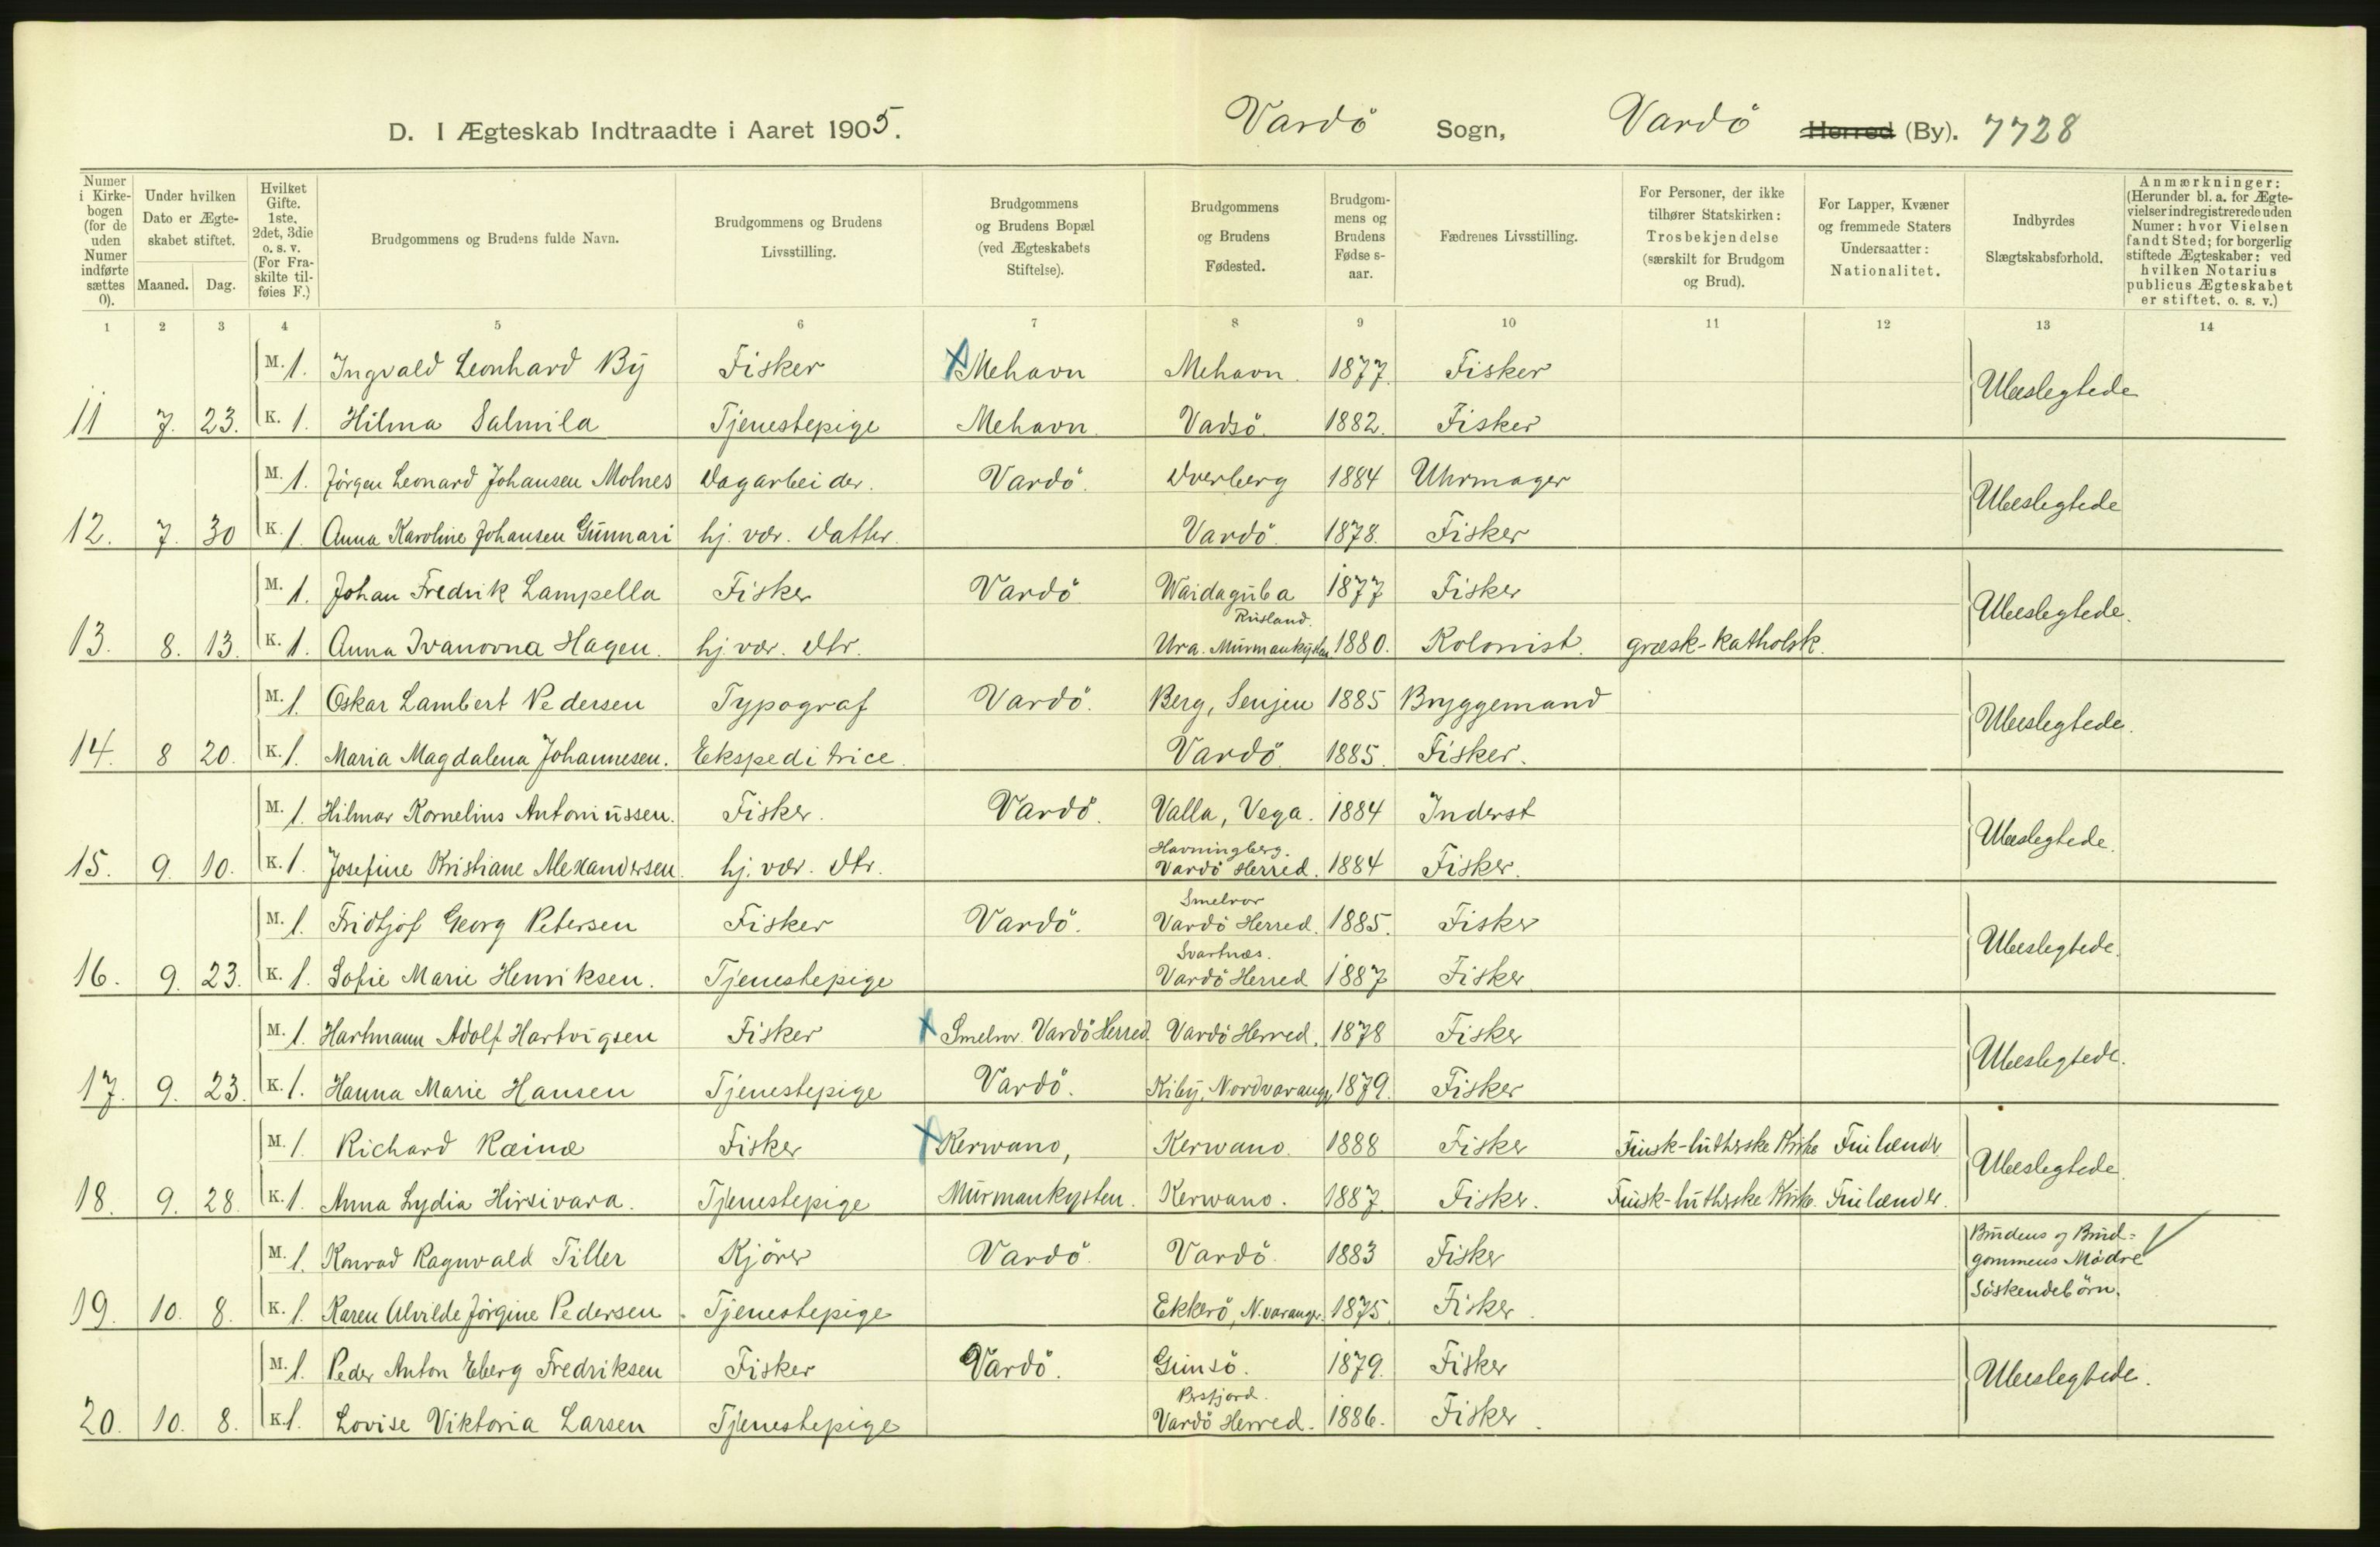 D. I Ægteskab Indtraadte i Aaret 1905. Vardö Sogn, Vardö Herred (By). 7728
Numer i Kirkebogen (for de uden Numer indførte sættes 0).
Under hvilken Dato er Ægteskabet stiftet.
Maaned. Dag.
Hvilket Gifte. 1ste, 2det, 3die o. s. v. (For Fraskilte tilføies F.)
Brudgommens og Brudens fulde Navn.
Brudgommens og Brudens Livsstilling.
Brudgommens og Brudens Bopæl (ved Ægteskabets Stiftelse).
Brudgommens og Brudens Fødested.
Brudgommens og Brudens Fødse s-aar.
Fædrenes Livsstilling.
For Personer, der ikke tilhører Statskirken: Trosbekjendelse (særskilt for Brudgom og Brud).
For Lapper, Kvæner og fremmede Staters Undersaatter: Nationalitet.
Indbyrdes Slægtskabsforhold.
Anmærkninger: (Herunder bl. a. for Ægtevielser indregistrerede uden Numer: hvor Vielsen fandt Sted; for borgerlig stiftede Ægteskaber: ved hvilken Notarius publicus Ægteskabet er stiftet, o. s. v.)
1 2 3 4 5 6 7 8 9 10 11 12 13 14
M. 1. Ingvald Leonhard By Fisker Mehavn Mehavn. 1877. Fisker Ubeslegtede
11 7. 23. K. 1. Hilma Salmila Tjenestepige Mehavn. Vadsö. 1882. Fisker
M. 1. Jörgen Leonard Johansen Molnes Dagarbeider. Vardö. Dverberg 1884 Uhrmager Ubeslegtede
12. 7. 30 K. 1 Anna Karoline Johansen Gunnari hj. vær. Datter. Vardö. 1878. Fisker
M. 1. Johan Fredrik Lampella Fisker Vardö Waidaguba 1877 Fisker Ubeslegtede.
Rusland.
13. 8. 13. K. 1. Anna Ivanovna Hagen. hj. vær. Dtr. Ura. Murmankysten 1880. Kolonist. græsk-katholsk.
M. 1. Oskar Lambert Pedersen Typograf Vardö. Berg, Senjen 1885 Bryggemand Ubeslegtede.
14. 8 20. K. 1. Maria Magdalena Johannesen. Ekspeditrice. Vardö. 1885. Fisker.
M. 1. Hilmar Kornelius Antoniussen. Fisker. Vardö. Valla, Vega. 1884 Inderst Ubeslegtede.
Havningberg.
15. 9. 10. K. 1. Josefine Kristiane Alexandersen. hj. vær. Dtr. Vardö Herred. 1884 Fisker.
Smelror
M. 1. Fridtjof Georg Petersen Fisker Vardö. Vardö Herred. 1885. Fisker Ubeslegtede.
Svartnæs.
16. 9. 23. K. 1. Sofie Marie Henriksen. Tjenestepige Vardö Herred 1887 Fisker
M. 1. Hartmann Adolf Hartvigsen Fisker Smelror. Vardö Herred. Vardö Herred. 1878 Fisker Ubeslegtede.
17. 9. 23. K. 1. Hanna Marie Hansen Tjenestepige Vardö. Kiby, Nordvarang. 1879. Fisker
M. 1. Richard Kæinæ Fisker Kerwano, Kerwano. 1888 Fisker Finsk-lutherske Kirke Finlænder Ubeslegtede.
18. 9. 28. K. 1. Anna Lydia Hirsivara. Tjenestepige Murmankysten. Kerwano. 1887. Fisker. Finsk-lutherske Kirke. Finlænder.
Brudens og Brud-
M. 1. Konrad Ragnvald Tiller Kjörer Vardö. Vardö. 1883 Fisker gommens Mödre
Söskendebörn.
19. 10. 8. K. 1. Karen Alvilde Jörgine Pedersen. Tjenestepige Ekkerö, N. varanger. 1875. Fisker.
M. 1. Peder Anton Eberg Fredriksen Fisker Vardö. Gimsö. 1879. Fisker Ubeslegtede.
Persfjord.
20. 10. 8. K. 1. Lovise Viktoria Larsen Tjenestepige Vardö Herred. 1886. Fisker.